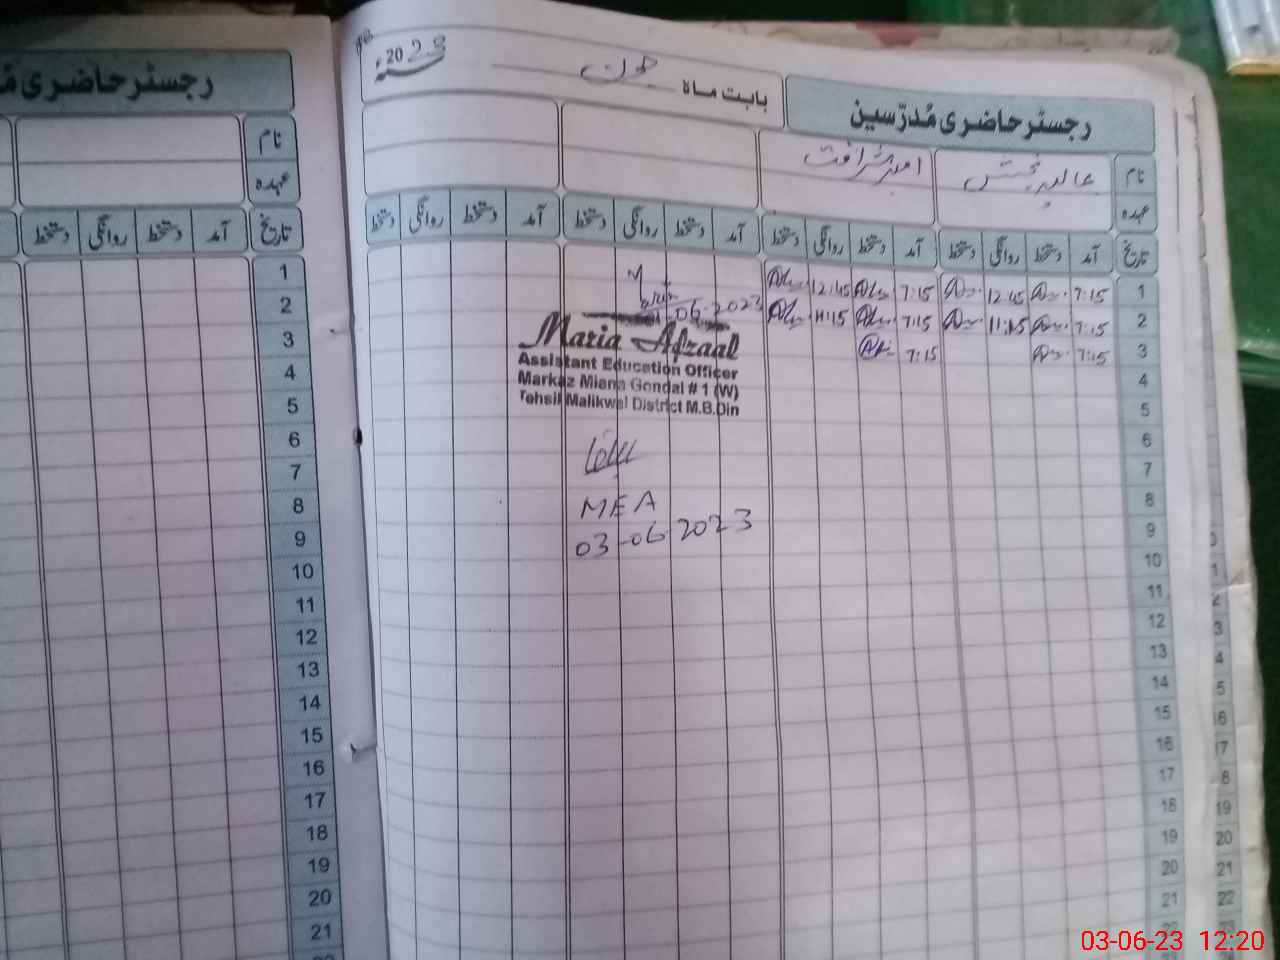 رجسٹر حاضری مُدرّسین
بابت ماہ جون
2023
نام
عہدہ
تاریخ آمد دستخط روانگی دستخط آمد دستخط روانگی دستخط آمد دستخط روانگی دستخط آمد دستخط روانگی دستخط
1 7:15 12:45 7:15 12:45
2 7:15 11:15 7:15 11:15
3 7:15 7:15
4
5
6
7
8
9
10
11
12
13
14
15
16
17
18
19
20
21
22
06-2023
Maria Afzaal
Assistant Education Officer
Markaz Miana Gondal # 1 (W)
Tehsil Malikwal District M.B.Din
MEA
03-06-2023
رجسٹر حاضری
نام
عہدہ
تاریخ آمد دستخط روانگی دستخط
1
2
3
4
5
6
7
8
9
10
11
12
13
14
15
16
17
18
19
20
21
19
20
21
22
03-06-23 12:20